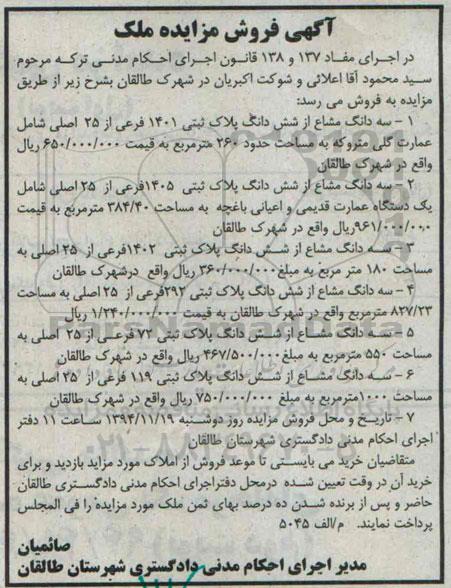 آگهی فروش مزایده ملک
در اجرای مفاد ۱۳۷ و ۱۳۸ قانون اجرای احکام مدنی ترکه مرحوم
سید محمود آقا اعلائی و شوکت اکبریان در شهرک طالقان بشرح زیر از طریق
مزایده به فروش می رسد:
۱ – سه دانگ مشاع از شش دانگ پلاک ثبتی ۱۴۰۱ فرعی از ۲۵ اصلی شامل
عمارت گلی متروکه به مساحت حدود ۲۶۰ مترمربع به قیمت ۶۵۰/۰۰۰/۰۰۰ ریال
واقع در شهرک طالقان
۲ – سه دانگ مشاع از شش دانگ پلاک ثبتی ۱۴۰۵فرعی از ۲۵ اصلی شامل
یک دستگاه عمارت قدیمی و اعیانی باغچه به مساحت ۳۸۴/۴۰ مترمربع به قیمت
۹۶۱/۰۰۰/۰۰۰ریال واقع در شهرک طالقان
۳ – سه دانگ مشاع از شش دانگ پلاک ثبتی ۱۴۰۲فرعی از ۲۵ اصلی به
مساحت ۱۸۰ متر مربع به مبلغ ۳۶۰/۰۰۰/۰۰۰ ریال واقع درشهرک طالقان
۴ – سه دانگ مشاع از شش دانگ پلاک ثبتی ۲۹۲فرعی از ۲۵ اصلی به مساحت
۸۲۷/۲۳ مترمربع واقع در شهرک طالقان به قیمت ۱/۲۴۰/۰۰۰/۰۰۰ ریال
۵ – سه دانگ مشاع از شش دانگ پلاک ثبتی ۷۲ فرعی از ۲۵ اصلی به
مساحت ۵۵۰ مترمربع به مبلغ ۴۶۷/۵۰۰/۰۰۰ ریال واقع در شهرک طالقان
۶ – سه دانگ مشاع از شش دانگ پلاک ثبتی ۱۱۹ فرعی از ۲۵ اصلی به
مساحت ۱۰۰۰مترمربع به مبلغ ۷۵۰/۰۰۰/۰۰۰ ریال واقع در شهرک طالقان
۷ – تاریخ و محل فروش مزایده روز دوشنبه ۱۳۹۴/۱۱/۱۹ ساعت ۱۱ دفتر
اجرای احکام مدنی دادگستری شهرستان طالقان
متقاضیان خرید می بایستی تا موعد فروش از املاک مورد مزاید بازدید و برای
خرید آن در وقت تعیین شده درمحل دفتراجرای احکام مدنی دادگستری طالقان
حاضر و پس از برنده شدن ده درصد بهای ثمن ملک مورد مزایده را فی المجلس
پرداخت نمایند. م/الف ۵۰۴۵
صائمیان
مدیر اجرای احکام مدنی دادگستری شهرستان طالقان
ParsNamadData